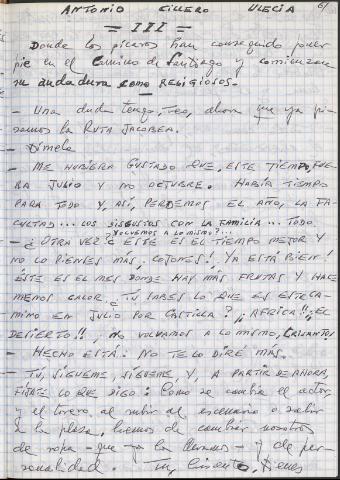 ANTONIO CILLERO ULECIA 61
= III =
Donde los pícaros han conseguido poner
pie en el Camino de Santiago y comienzan
su andadura como RELIGIOSOS.
- Una duda tengo, Teo, ahora que ya pi-
samos la RUTA JACOBEA.
- Dímela
- ME HUBIERA GUSTADO QUE, ESTE TIEMPO, FUE-
RA JULIO Y NO OCTUBRE. HABÍA TIEMPO
PARA TODO Y, ASÍ, PERDEMOS EL AÑO, LA FA-
CULTAD... LOS DISGUSTOS CON LA FAMILIA... TODO
¿VOLVEMOS A LO MISMO?...
- ¿OTRA VEZ? ESTE ES EL TIEMPO MEJOR Y
NO LO PIENSES MÁS, COJONES! ¡YA ESTÁ BIEN!
ÉSTE ES EL MES DONDE HAY MÁS FRUTAS Y HACE
MENOS CALOR. ¿TÚ SABES LO QUE ES ESTE CA-
MINO EN JULIO POR CASTILLA? ¡¡AFRICA!!; ¡EL
DESIERTO!!, NO VOLVAMOS A LO MISMO, CRISANTO!
- HECHO ESTÁ. NO TE LO DIRE MÁS.
- TÚ, SÍGUEME, SÍGUEME, Y, A PARTIR DE AHORA,
FÍJATE LO QUE DIGO: Como se cambia el actor,
y el torero, al subir al escenario o salir
a la plaza, hemos de cambiar nosotros
de ropa - que ya la llevamos - y de per-
sonalidad. Tú, Crisanto, tienes